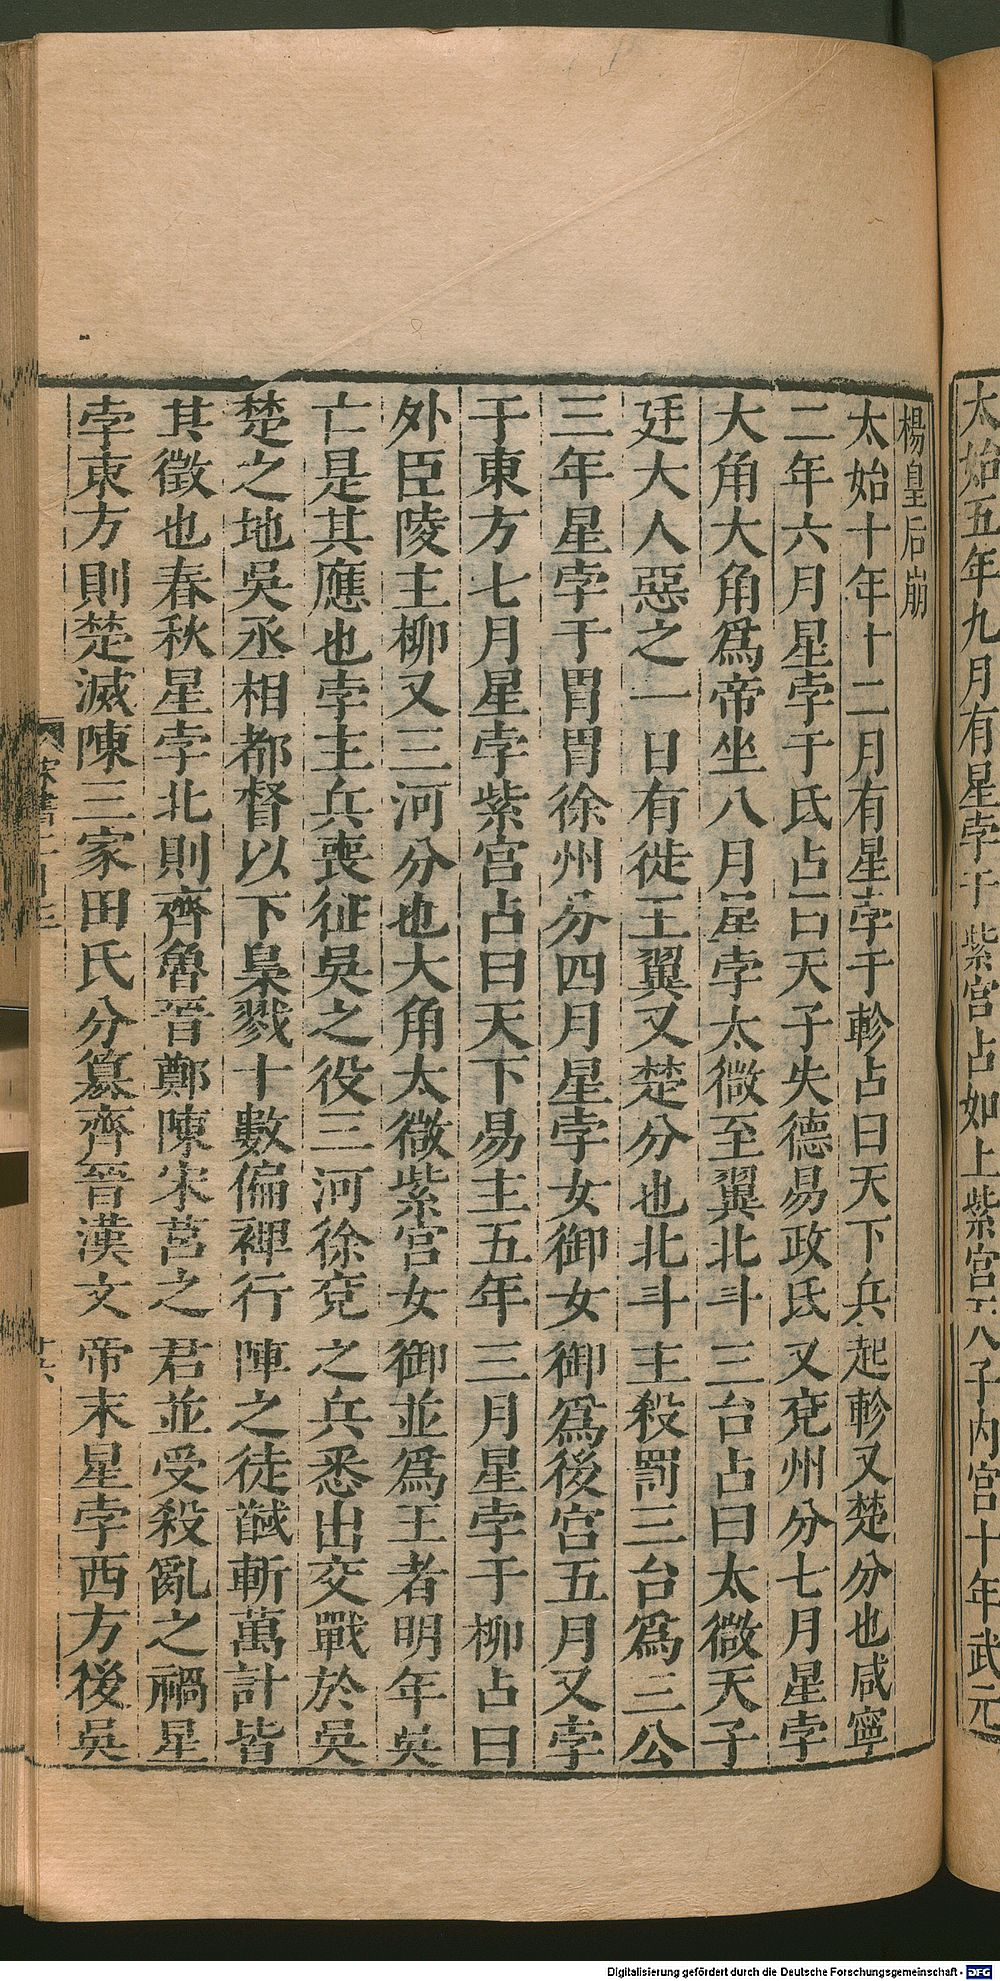 太始五年九月有星孛于紫宮占如上紫宮天子內宮十年武元
楊皇后崩
太始十年十二月有星孛于軫占曰天下兵起軫又楚分也咸寧
二年六月星孛于氐占曰天子失德易政氐又兗州分七月星孛
大角大角爲帝坐八月星孛太微至翼北斗三台占曰太微天子
廷大人惡之一曰有徙王翼又楚分也北斗主殺罰三台爲三公
三年星孛于胃胃徐州分四月星孛女御女御爲後宮五月又孛
于東方七月星孛紫宮占曰天下易主五年三月星孛于柳占曰
外臣陵主柳又三河分也大角太微紫宮女御並爲王者明年吳
亡是其應也孛主兵喪征吳之役三河徐兗之兵悉出交戰於吳
楚之地吳丞相都督以下梟戮十數偏裨行陣之徒馘斬萬計皆
其徵也春秋星孛北則齊魯晉鄭陳宋莒之君並受殺亂之禍星
孛東方則楚滅陳三家田氏分篡齊晉漢文帝末星孛西方後吳
宋書
十六
Digitalisierung gefördert durch die Deutsche Forschungsgemeinschaft - DFG